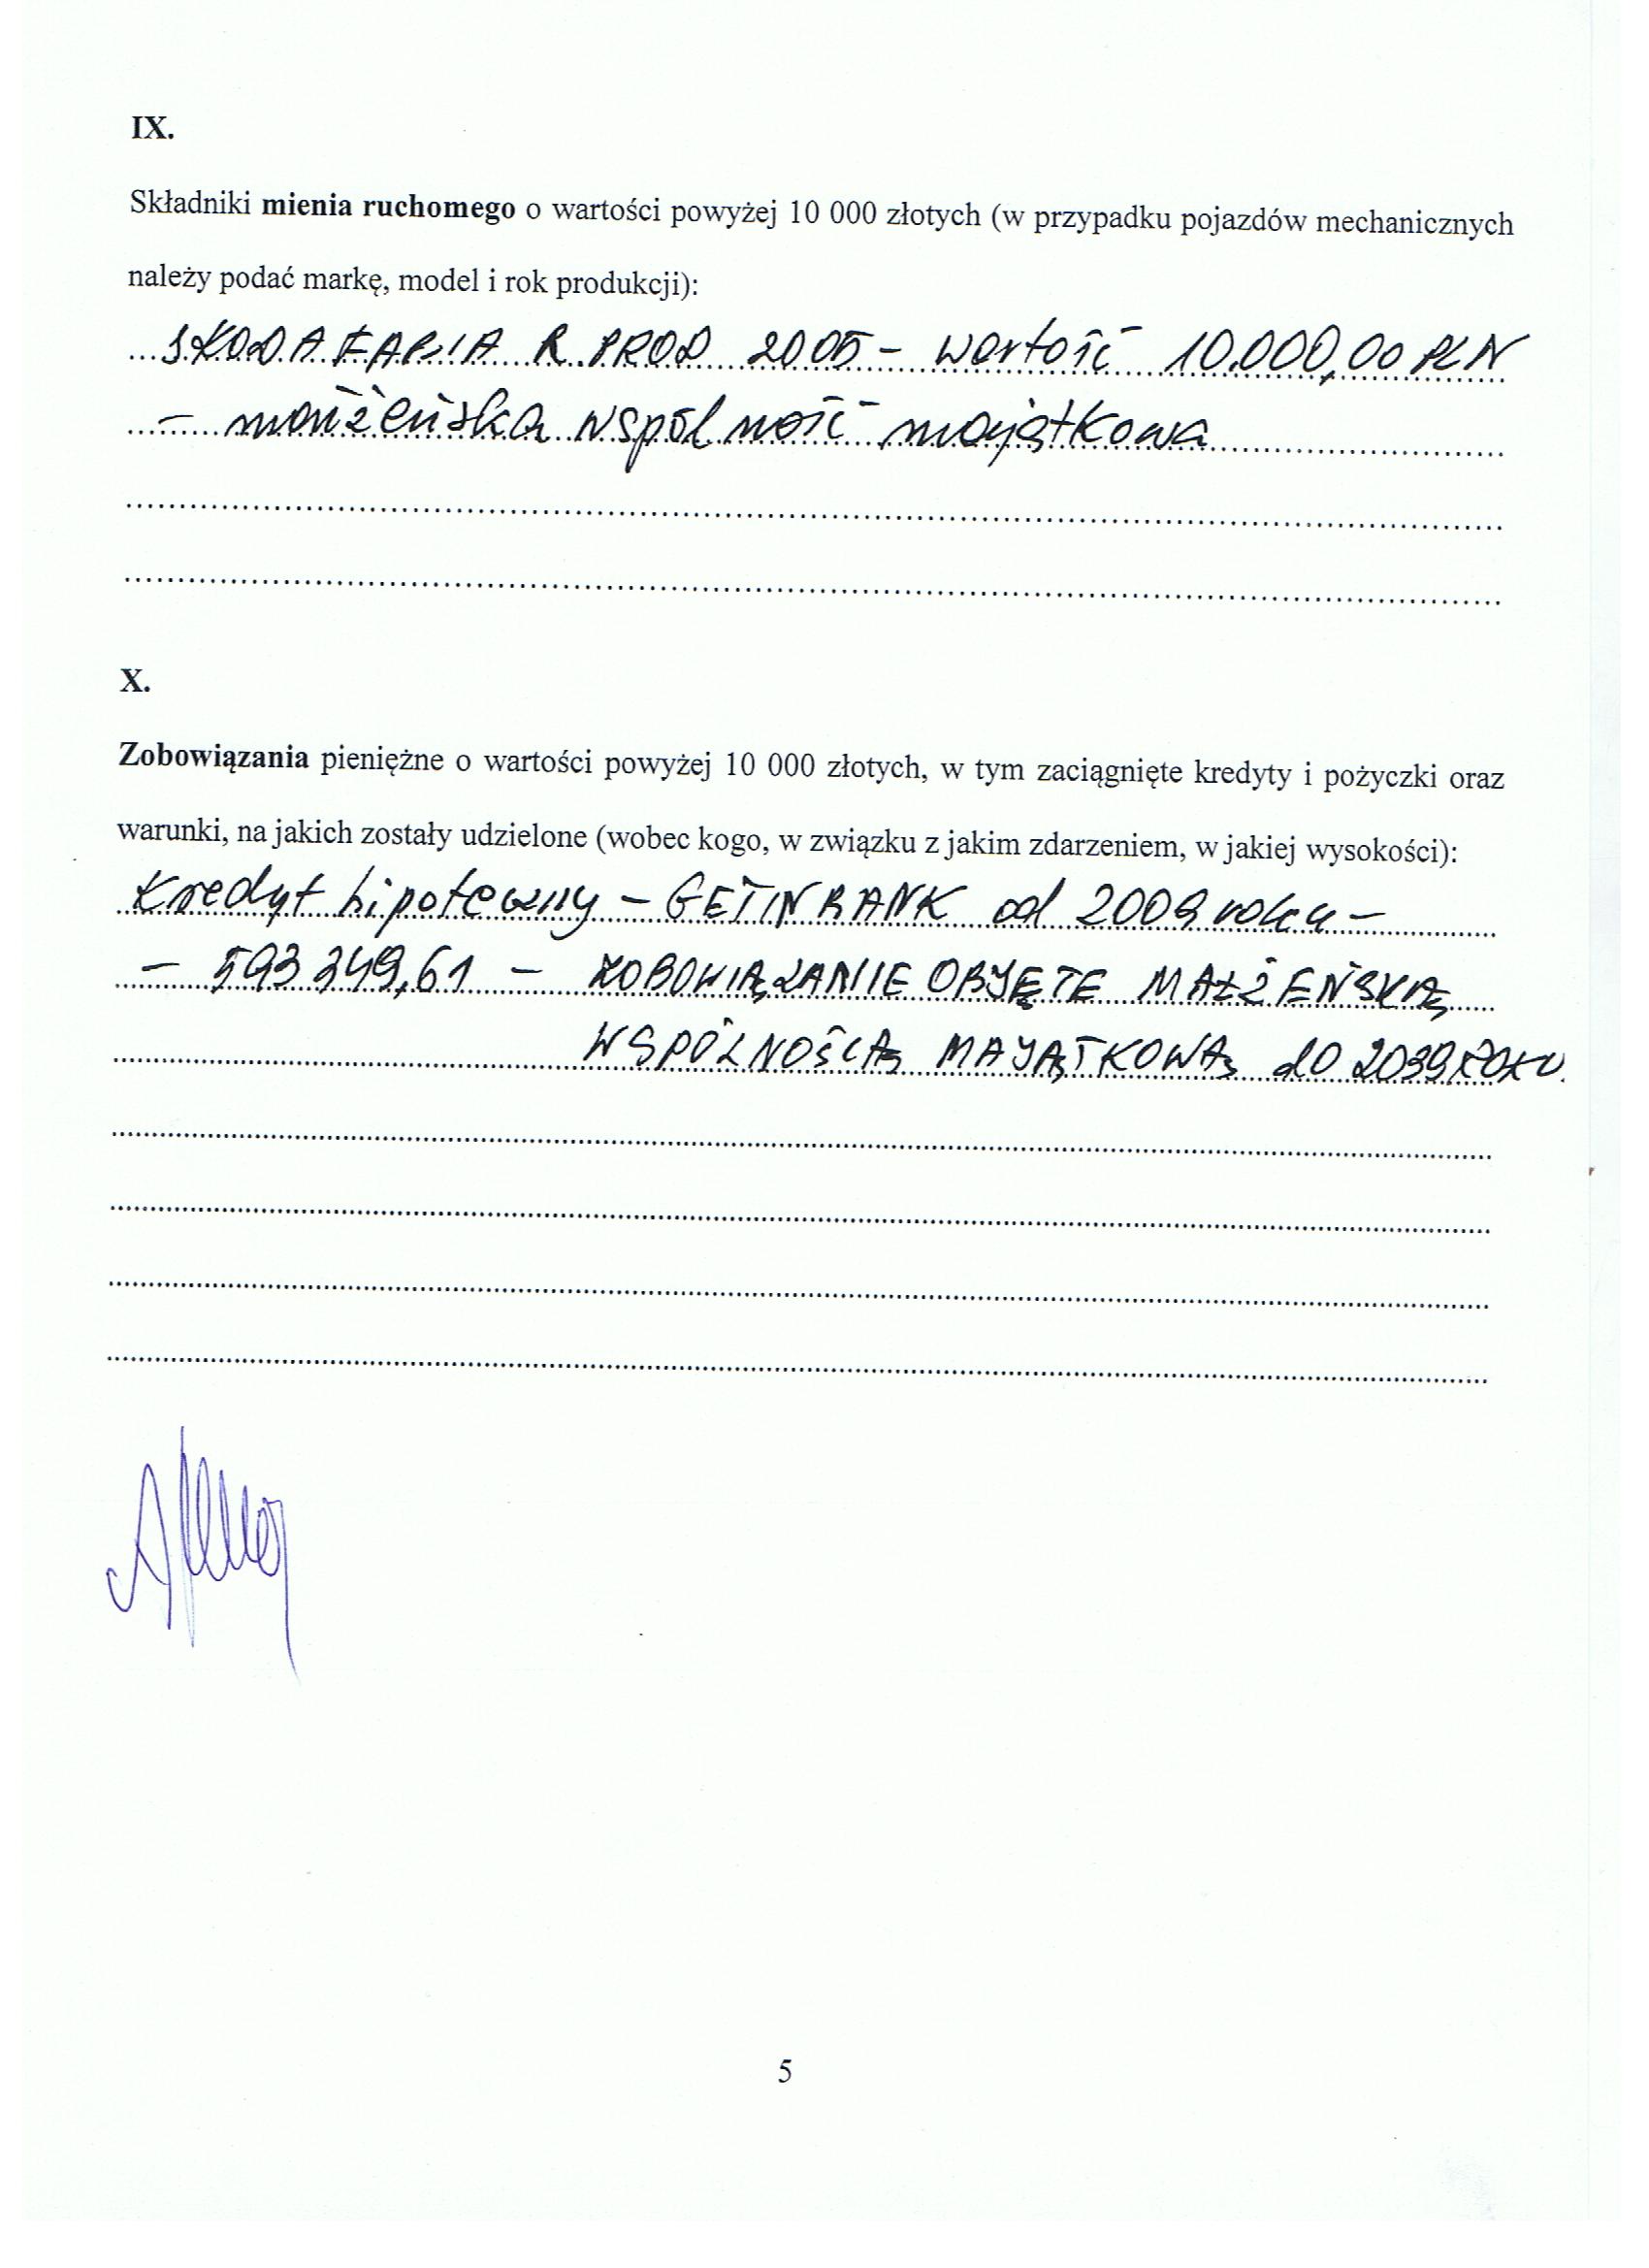 IX.
Składniki mienia ruchomego o wartości powyżej 10 000 złotych (w przypadku pojazdów mechanicznych
należy podać markę, model i rok produkcji):
SKODA FABIA R. PROD 2005 - wartość 10.000,00 PLN
- małżeńska wspólność majątkowa
X.
Zobowiązania pieniężne o wartości powyżej 10 000 złotych, w tym zaciągnięte kredyty i pożyczki oraz
warunki, na jakich zostały udzielone (wobec kogo, w związku z jakim zdarzeniem, w jakiej wysokości):
Kredyt hipoteczny - GETIN BANK od 2009 roku -
- 593 349,61 - ZOBOWIĄZANIE OBJĘTE MAŁŻEŃSKĄ
WSPÓLNOŚCIĄ MAJĄTKOWĄ do 2039 ROKU.
5